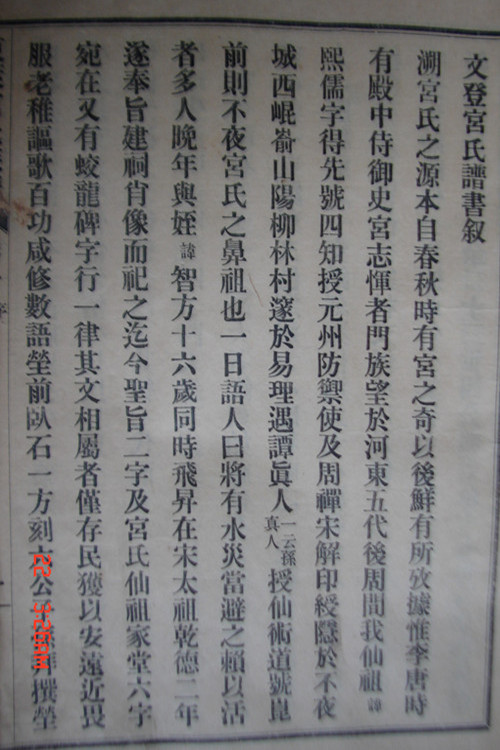 文登宮氏譜書叙
溯宮氏之源本自春秋時有宮之奇以後鮮有所攷據惟李唐時
有殿中侍御史宮志惲者門族望於河東五代後周間我仙祖諱
熙儒字得先號四知授元州防禦使及周禪宋解印綬隱於不夜
城西崐嵛山陽柳林村邃於易理遇譚眞人一云孫真人授仙術道號崑
前則不夜宮氏之鼻祖也一日語人曰將有水災當避之賴以活
者多人晚年與姪諱智方十六歲同時飛昇在宋太祖乾德二年
遂奉旨建祠肖像而祀之迄今聖旨二字及宮氏仙祖家堂六字
宛在又有蛟龍碑字行一律其文相屬者僅存民獲以安遠近畏
服老稚謳歌百功咸修數語塋前臥石一方刻公拜撰塋
22 3:26AM